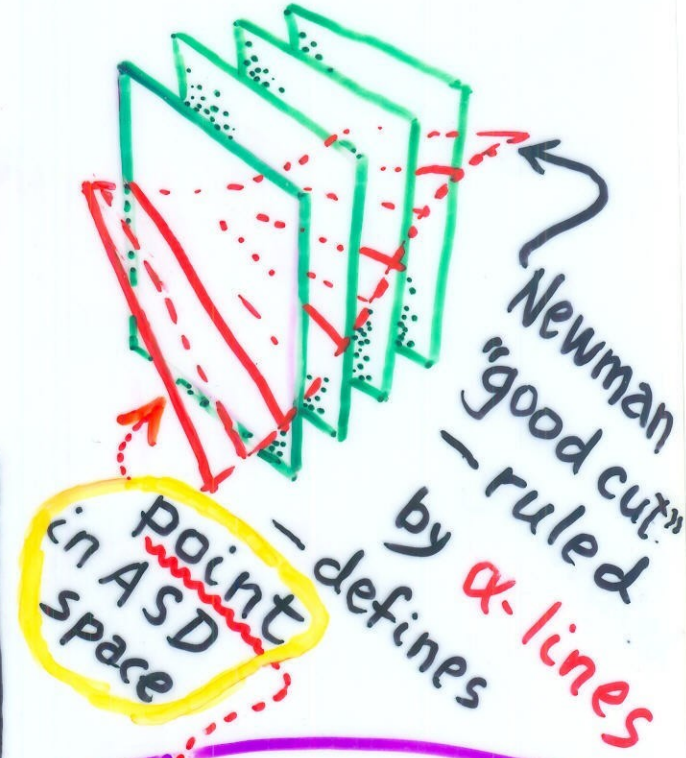 Newman
"good cut"
– ruled
by α-lines
– defines
point
in ASD
space